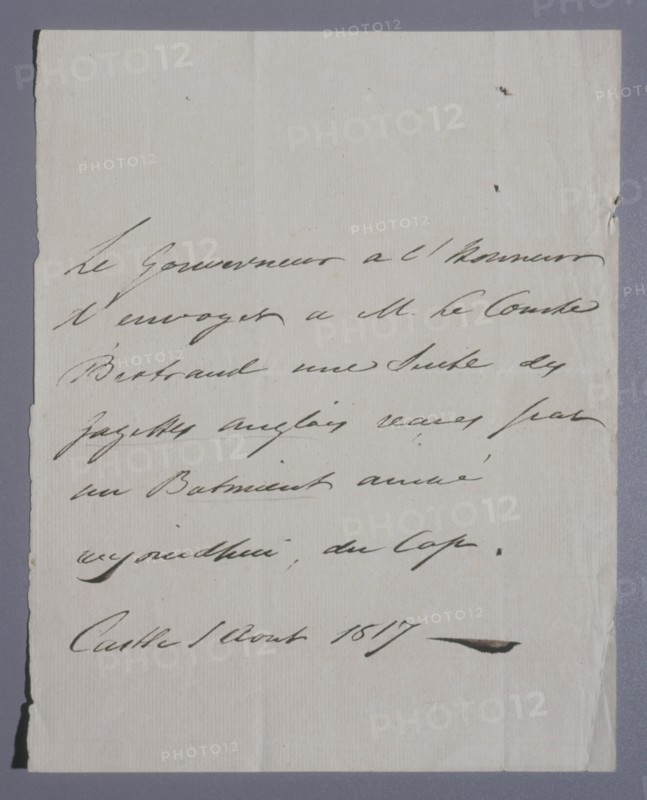 Le Gouverneur a l'honneur
d'envoyer a M. Le Comte
Bertrand une Suite des
gazettes anglois recues par
un Batiment arrivé
aujourdhui, du Cap.
Castle 1 Aout 1817
PHOTO12